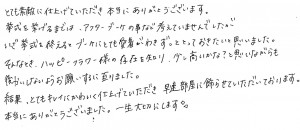 とても素敵に仕上げていただき 本当にありがとうございます。
挙式を挙げるまでは、アフターブーケの事など考えていませんでしたが
いざ挙式を終えると、ブーケにとても愛着がわきずっととっておきたいと思いました。
そんなとき、ハッピーフラワー様の存在を知り、少し高いかな?と思いながらも
後悔しないようお願いするに至りました。
結果、とてもキレイにかわいく仕上げていただき 早速部屋に飾らせていただいております。
本当にありがとうございました。一生大切にします。